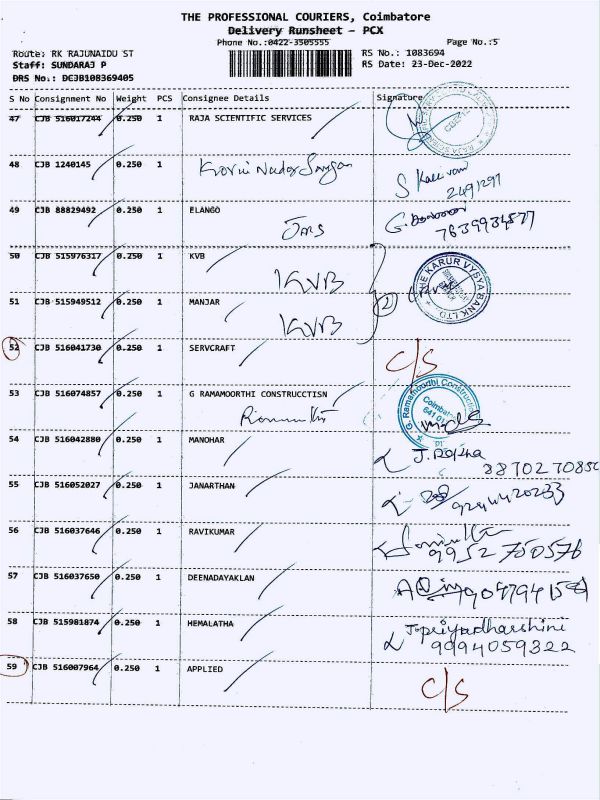 THE PROFESSIONAL COURIERS, Coimbatore
Delivery Runsheet - PCX
Phone No.:0422-3305555
Page No.:5
Route: RK RAJUNAIDU ST
RS No.: 1083694
Staff: SUNDARAJ P
RS Date: 23-Dec-2022
DRS No.: DCJB108369405
S No Consignment No Weight PCS Consignee Details Signature
47 CJB 516017244 0.250 1 RAJA SCIENTIFIC SERVICES
48 CJB 1240145 0.250 1
S
2491297
49 CJB 88829492 0.250 1 ELANGO
7639934877
50 CJB 515976317 0.250 1 KVB
KVB
THE KARUR VYSYA BANK LTD
2
51 CJB 515949512 0.250 1 MANJAR
KVB
52 CJB 516041730 0.250 1 SERVCRAFT C/S
53 CJB 516074857 0.250 1 G RAMAMOORTHI CONSTRUCCTISN
Coimbatore
54 CJB 516042880 0.250 1 MANOHAR
8870270850
55 CJB 516052027 0.250 1 JANARTHAN
56 CJB 516037646 0.250 1 RAVIKUMAR
9952 750576
57 CJB 516037650 0.250 1 DEENADAYAKLAN
58 CJB 515981874 0.250 1 HEMALATHA
J.priyadharshini
9094059322
59 CJB 516007964 0.250 1 APPLIED C/S